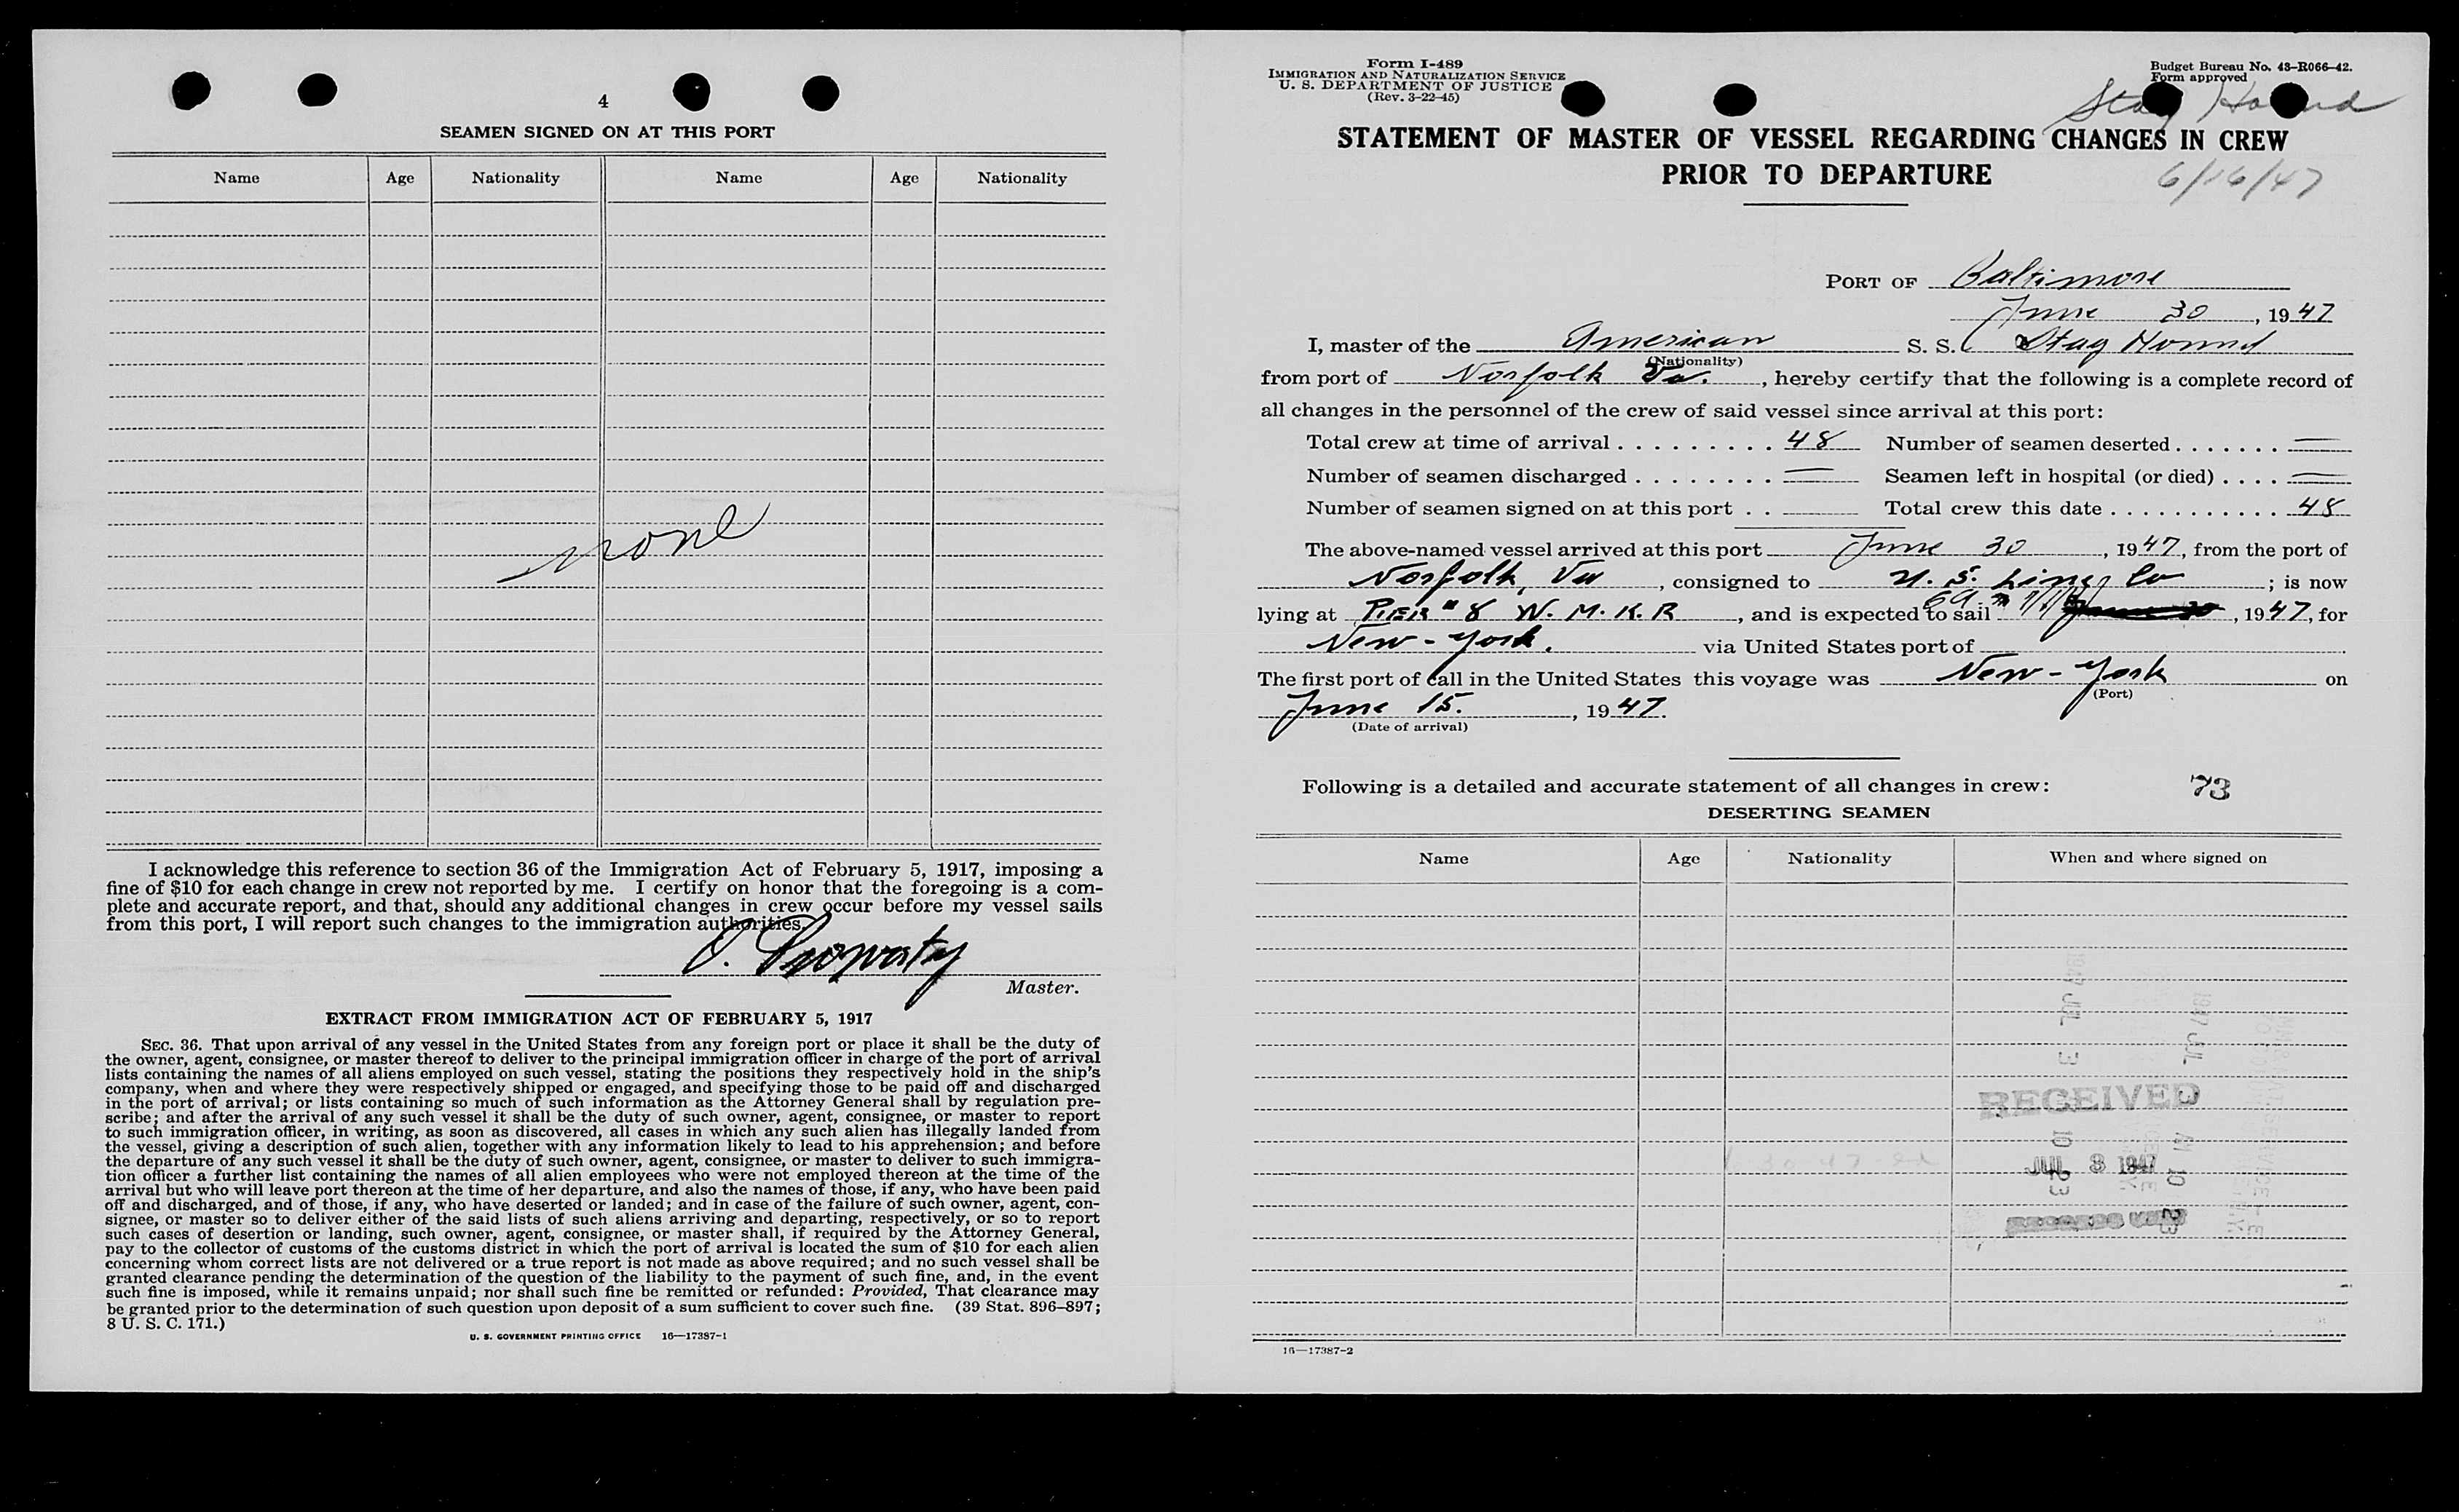 4
SEAMEN SIGNED ON AT THIS PORT
Name Age Nationality Name Age Nationality
none
I acknowledge this reference to section 36 of the Immigration Act of February 5, 1917, imposing a
fine of $10 for each change in crew not reported by me. I certify on honor that the foregoing is a com-
plete and accurate report, and that, should any additional changes in crew occur before my vessel sails
from this port, I will report such changes to the immigration authorities.
Master.
EXTRACT FROM IMMIGRATION ACT OF FEBRUARY 5, 1917
SEC. 36. That upon arrival of any vessel in the United States from any foreign port or place it shall be the duty of
the owner, agent, consignee, or master thereof to deliver to the principal immigration officer in charge of the port of arrival
lists containing the names of all aliens employed on such vessel, stating the positions they respectively hold in the ship's
company, when and where they were respectively shipped or engaged, and specifying those to be paid off and discharged
in the port of arrival; or lists containing so much of such information as the Attorney General shall by regulation pre-
scribe; and after the arrival of any such vessel it shall be the duty of such owner, agent, consignee, or master to report
to such immigration officer, in writing, as soon as discovered, all cases in which any such alien has illegally landed from
the vessel, giving a description of such alien, together with any information likely to lead to his apprehension; and before
the departure of any such vessel it shall be the duty of such owner, agent, consignee, or master to deliver to such immigra-
tion officer a further list containing the names of all alien employees who were not employed thereon at the time of the
arrival but who will leave port thereon at the time of her departure, and also the names of those, if any, who have been paid
off and discharged, and of those, if any, who have deserted or landed; and in case of the failure of such owner, agent, con-
signee, or master so to deliver either of the said lists of such aliens arriving and departing, respectively, or so to report
such cases of desertion or landing, such owner, agent, consignee, or master shall, if required by the Attorney General,
pay to the collector of customs of the customs district in which the port of arrival is located the sum of $10 for each alien
concerning whom correct lists are not delivered or a true report is not made as above required; and no such vessel shall be
granted clearance pending the determination of the question of the liability to the payment of such fine, and, in the event
such fine is imposed, while it remains unpaid; nor shall such fine be remitted or refunded: Provided, That clearance may
be granted prior to the determination of such question upon deposit of a sum sufficient to cover such fine. (39 Stat. 896–897;
8 U. S. C. 171.)
U. S. GOVERNMENT PRINTING OFFICE 16—17387-1
Form I-489
IMMIGRATION AND NATURALIZATION SERVICE
U. S. DEPARTMENT OF JUSTICE
(Rev. 3-22-45)
Budget Bureau No. 43-R066-42.
Form approved
Stag Hound
STATEMENT OF MASTER OF VESSEL REGARDING CHANGES IN CREW
PRIOR TO DEPARTURE
6/16/47
PORT OF Baltimore
June 30, 1947
I, master of the American S. S. Stag Hound
(Nationality)
from port of Norfolk Va., hereby certify that the following is a complete record of
all changes in the personnel of the crew of said vessel since arrival at this port:
Total crew at time of arrival . . . . . . . . . 48 Number of seamen deserted . . . . . . . —
Number of seamen discharged . . . . . . . . — Seamen left in hospital (or died) . . . . —
Number of seamen signed on at this port . . Total crew this date . . . . . . . . . . . 48
The above-named vessel arrived at this port June 30, 1947, from the port of
Norfolk, Va, consigned to U. S. Lines Co; is now
lying at PIER #8 W. M. R. R, and is expected to sail, 1947, for
New-York. via United States port of
The first port of call in the United States this voyage was New-York on
(Port)
June 15., 1947.
(Date of arrival)
Following is a detailed and accurate statement of all changes in crew: 73
DESERTING SEAMEN
Name Age Nationality When and where signed on
1947 JUL 3
RECEIVED
JUL 3 1947
16—17387-2